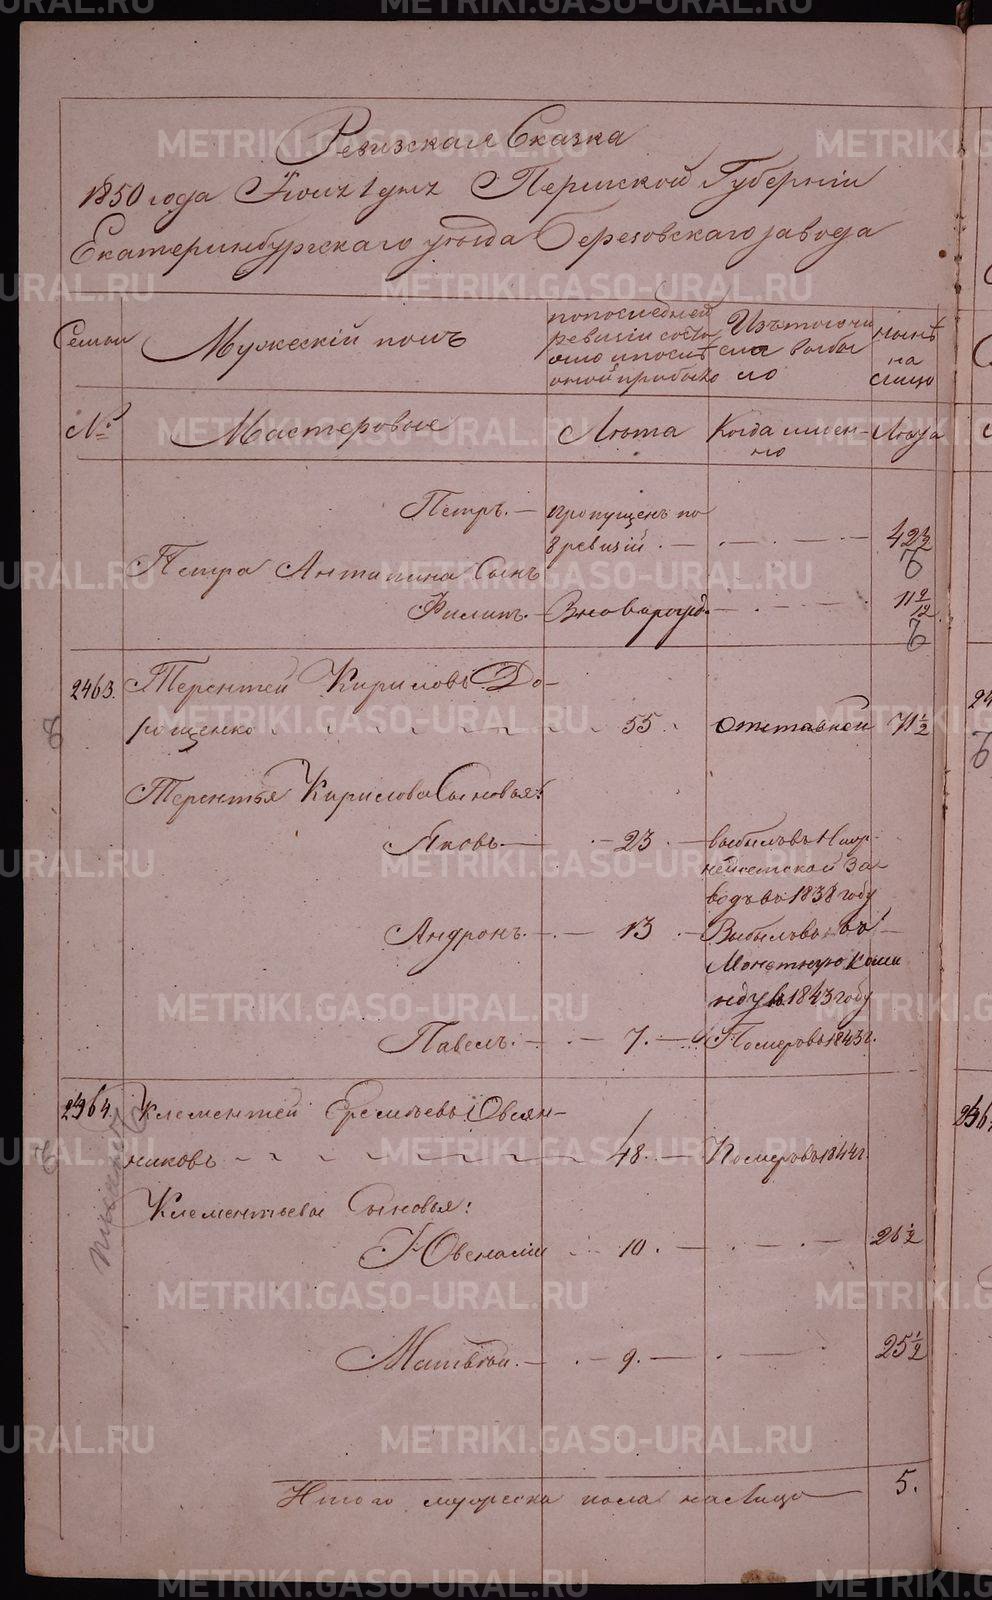 Ревизская Сказка
1850 года Пермской Губернии
Екатеринбургскаго уезда Березовскаго завода
Семьи
Мужескій полъ
по последней ревизіи состояло и после оной прибыло
Изъ того числа выбыло
ныне на лицо
№
Мастеровые
Лета
Когда именно
Лета
Петръ. пропущенъ по
8 ревизіи 42
Петра Антипина Сынъ
Филипъ. Вновь рожд. 11 9/12
2463. Терентей Кириловъ До-
рощенко 55 отставной 71 1/2
Терентья Кирилова Сыновья:
Яковъ 23 выбылъ въ
ской За-
водъ въ 1838 году
Андронъ 13 Выбылъ въ
Монетную Кома
нду въ 1843 году
Павелъ. 7. Померъ въ 1843 г.
2464. Клементей Еремеевъ Овсян-
никовъ 48. Померъ въ 1844 г.
Клементьевы Сыновья:
Ювеналій 10. 26 1/2
Матвей 9. 25 1/2
Итого мужеска пола на лицо 5.
METRIKI.GASO-URAL.RU